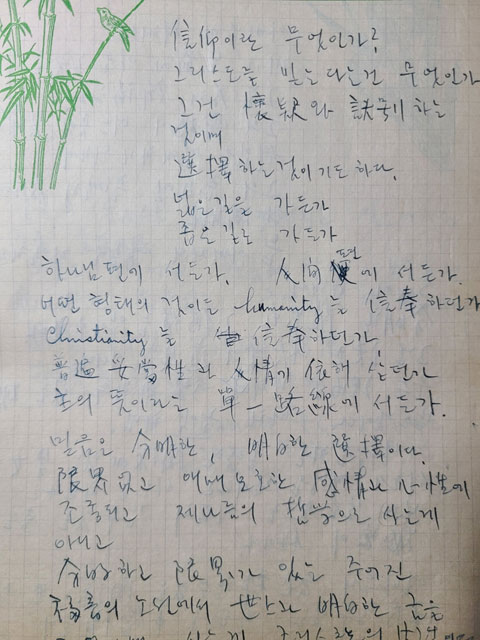 信仰이란 무엇인가?
그리스도를 믿는다는건 무엇인가
그건 懷疑와 訣別하는
것이며
選擇하는 것이기도 하다.
넓은 길을 가든가
좁은 길로 가든가
하나님편에 서든가. 人間편에 서든가.
어떤 형태의 것이든 humanity를 信奉하던가
Christianity를 信奉하던가
普遍妥當性과 人情에 依해 살던가
主의 뜻이라는 單一路線에 서든가.
믿음은 分明한, 明白한 選擇이다.
限界없고 애매모호한 感情과 心性에
조종되고 제나름의 哲學으로 사는게
아니고
分明하고 限界가 있는 주어진
福音의 노선에서 世上과 明白한
사는게